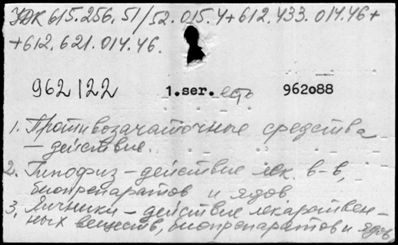 УДК 615.256.51/52.015.4+612.433.014.46+
+612.621.014.46.
962122 1.ser. есть 962088
1. Противозачаточные средства
– действие.
2. Гипофиз – действие лек. в-в,
биопрепаратов и ядов
3. Яичники – действие лекарствен-
ных веществ, биопрепаратов и ядов